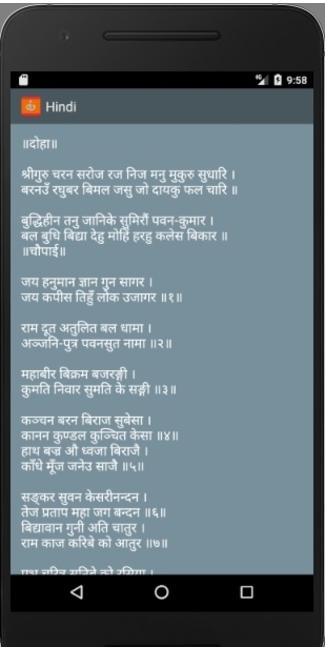 9:58
Hindi
॥दोहा॥
श्रीगुरु चरन सरोज रज निज मनु मुकुरु सुधारि ।
बरनउँ रघुबर बिमल जसु जो दायकु फल चारि ॥
बुद्धिहीन तनु जानिके सुमिरौं पवन-कुमार ।
बल बुधि बिद्या देहु मोहिं हरहु कलेस बिकार ॥
॥चौपाई॥
जय हनुमान ज्ञान गुन सागर ।
जय कपीस तिहुँ लोक उजागर ॥१॥
राम दूत अतुलित बल धामा ।
अञ्जनि-पुत्र पवनसुत नामा ॥२॥
महाबीर बिक्रम बजरङ्गी ।
कुमति निवार सुमति के सङ्गी ॥३॥
कञ्चन बरन बिराज सुबेसा ।
कानन कुण्डल कुञ्चित केसा ॥४॥
हाथ बज्र औ ध्वजा बिराजै ।
काँधे मूँज जनेउ साजै ॥५॥
सङ्कर सुवन केसरीनन्दन ।
तेज प्रताप महा जग बन्दन ॥६॥
बिद्यावान गुनी अति चातुर ।
राम काज करिबे को आतुर ॥७॥